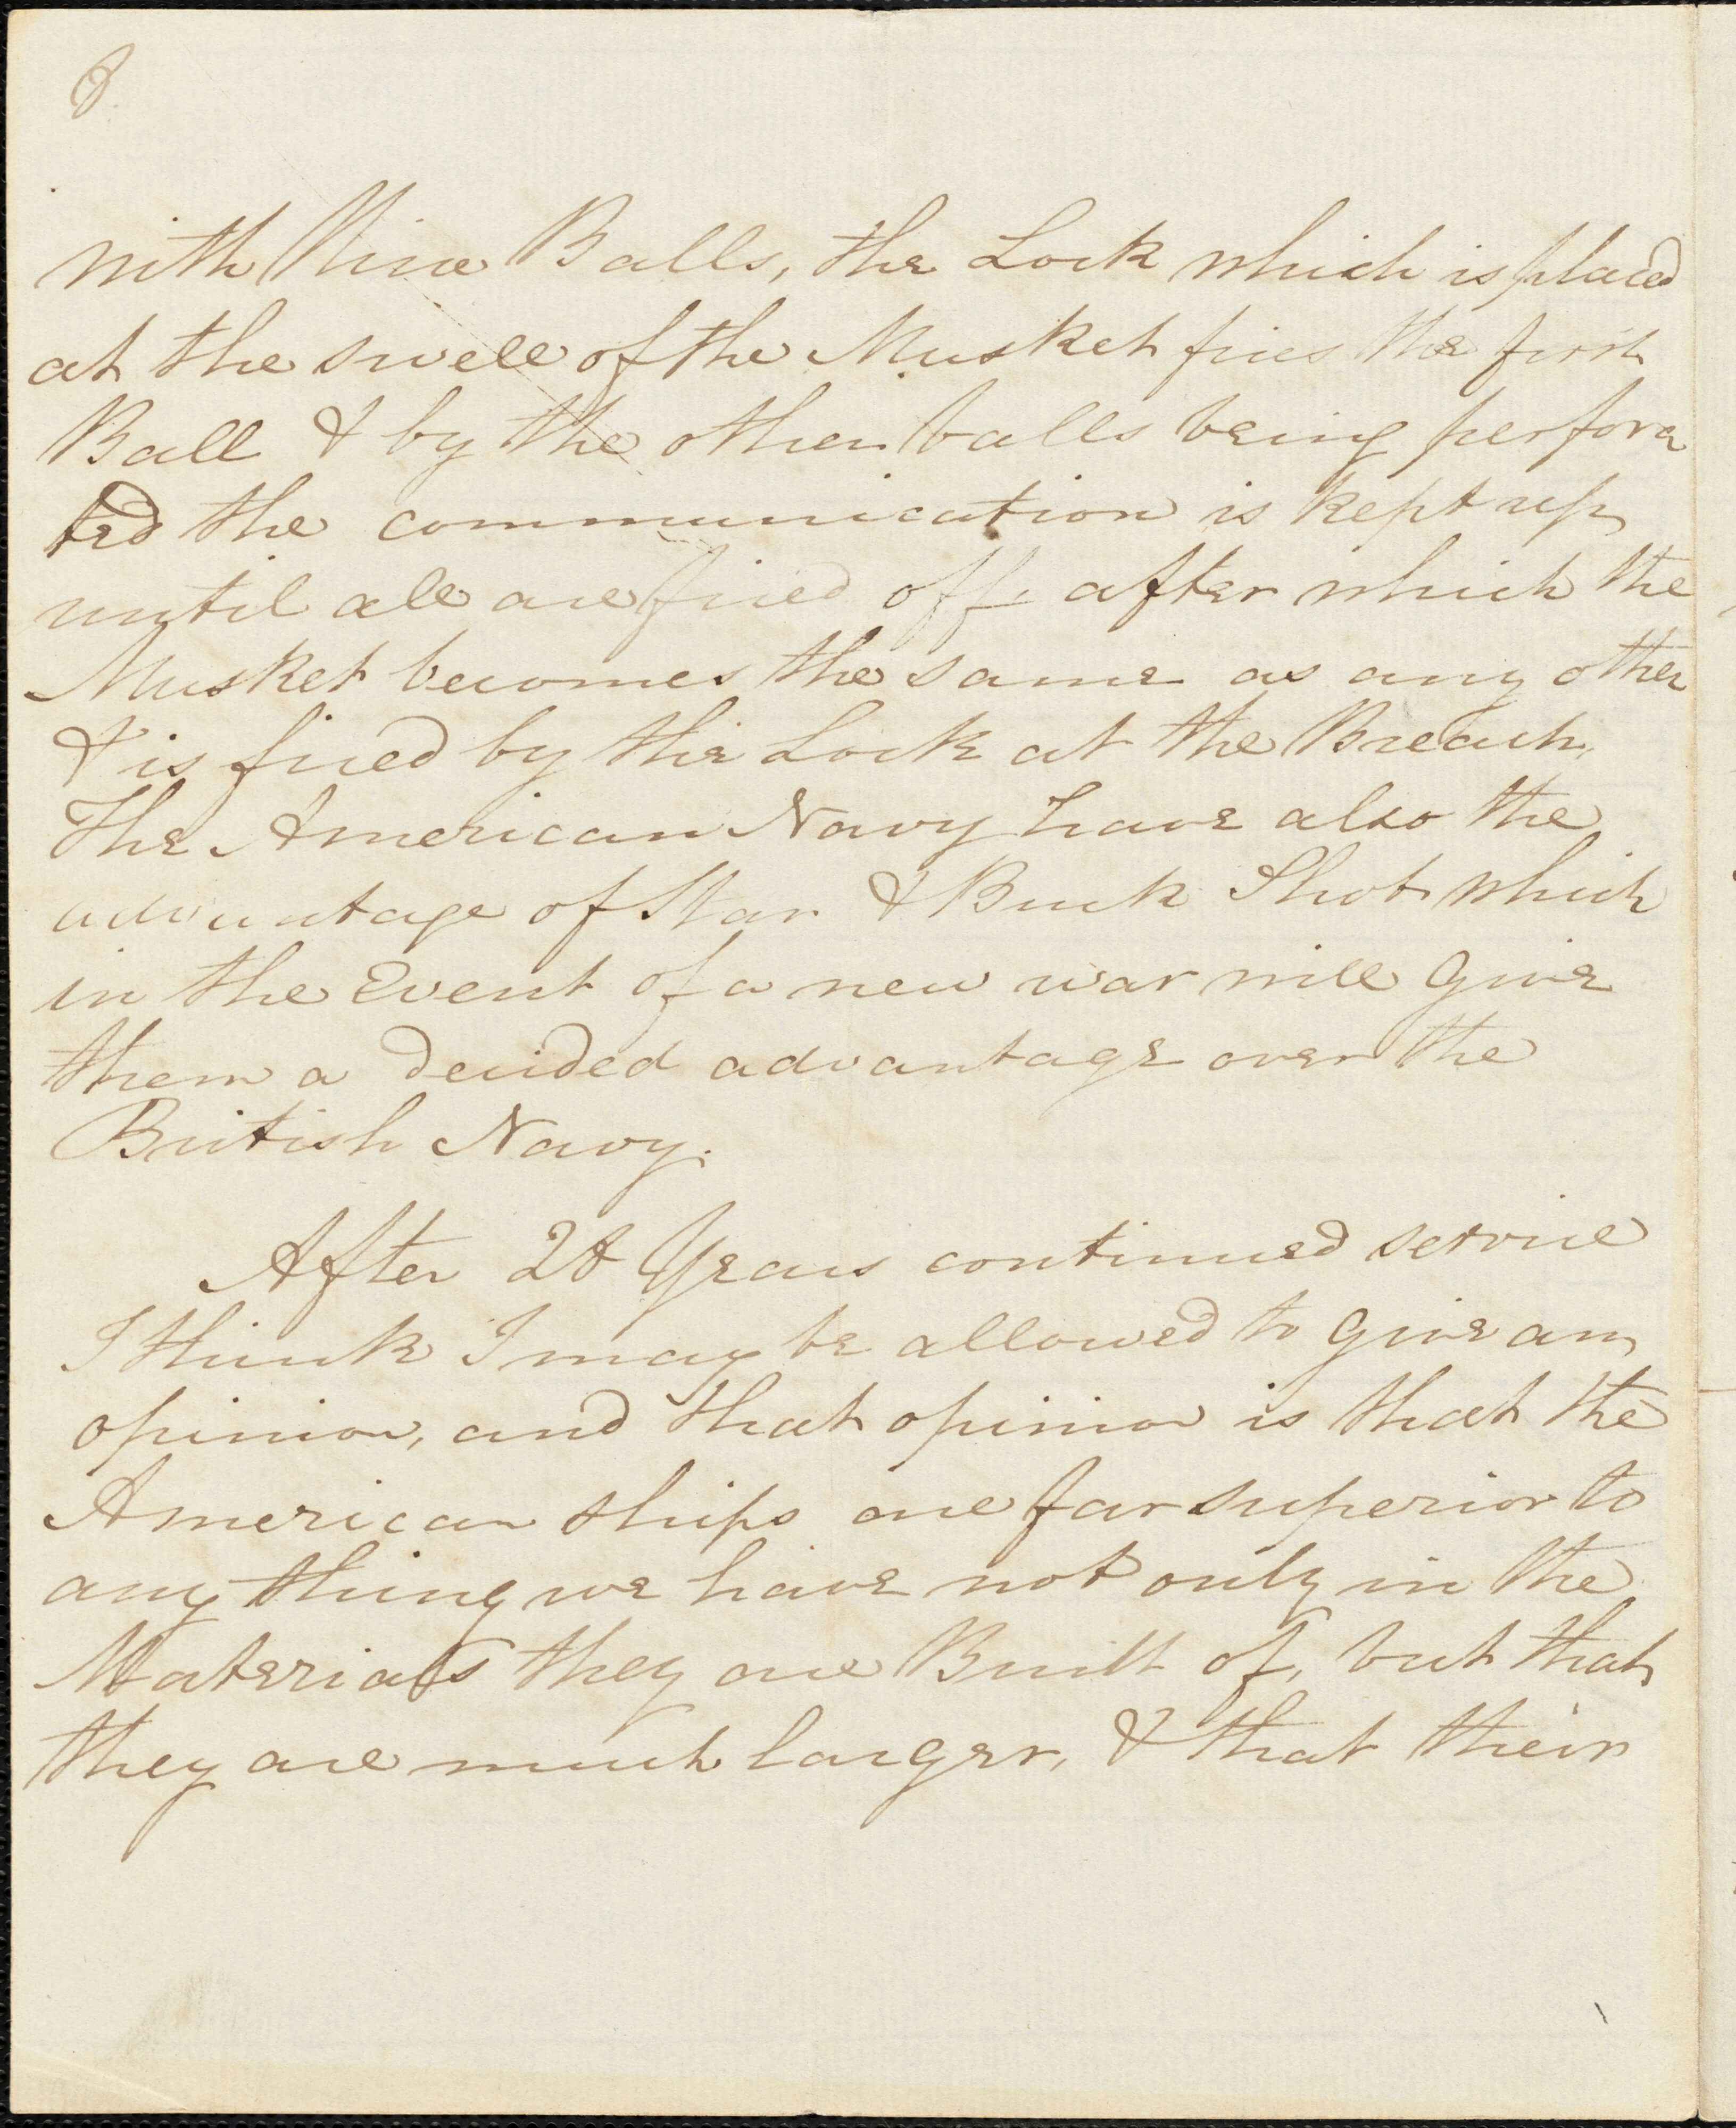 8.
with Nine Balls, the Lock which is placed
at the swell of the Musket fires the first
Ball & by the other balls being perfora
ted the communication is kept up
until all are fired off, after which the
Musket becomes the same as any other
& is fired by the Lock at the Breach,
The American Navy have also the
advantage of Star & Buck Shot which
in the Event of a new war will Give
them a decided advantage over the
British Navy.
After 28 Years continued service
I think I may be allowed to give an
opinion, and that opinion is that the
American ships are far superior to
any thing we have not only in the
Materials they are Built of, but that
they are much larger, & that their